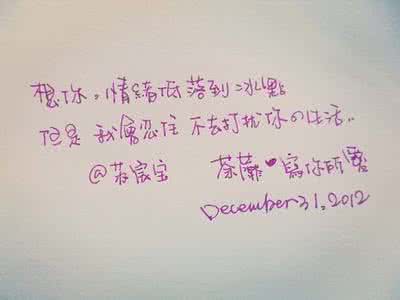 想你。情緒低落到冰點
但是 我會忍住 不去打扰你の生活..
@苏宸宝 荼蘼❤寫你所
December 31.2012